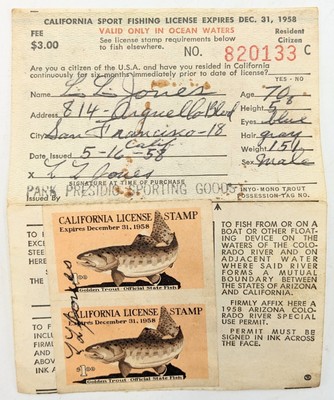 CALIFORNIA SPORT FISHING LICENSE EXPIRES DEC. 31, 1958
Fee
$3.00
VALID ONLY IN OCEAN WATERS
See license stamp requirements below
to fish elsewhere.
Resident
Citizen
NO. 820133 C
Are you a citizen of the U.S.A. and have you resided in California
continuously for six months immediately prior to date of license?
YES - NO
Name L. L. Jones Age 70
Address 814-Arguello Blvd Height 5 8
City San Francisco-18 Eyes blue
Calif Hair gray
Date Issued 5-16-58 Weight 151
X L L Jones Sex Male
SIGNATURE AT TIME OF PURCHASE
Issued By PARK PRESIDIO SPORTING GOODS
INYO-MONO TROUT
POSSESSION TAG NO.
CALIFORNIA LICENSE STAMP
Expires December 31, 1958
Golden Trout - Official State Fish
CALIFORNIA LICENSE STAMP
Expires December 31, 1958
$1.00
Golden Trout - Official State Fish
L L Jones
TO FISH FROM OR ON A
BOAT OR OTHER FLOAT-
ING DEVICE ON THE
WATERS OF THE COLO-
RADO RIVER AND ON
ADJACENT WATER
WHERE SAID RIVER
FORMS A MUTUAL
BOUNDARY BETWEEN
THE STATES OF ARIZONA
AND CALIFORNIA.
FIRMLY AFFIX HERE A
1958 ARIZONA COLO-
RADO RIVER SPECIAL
USE PERMIT.
PERMIT MUST BE
SIGNED IN INK ACROSS
THE FACE.